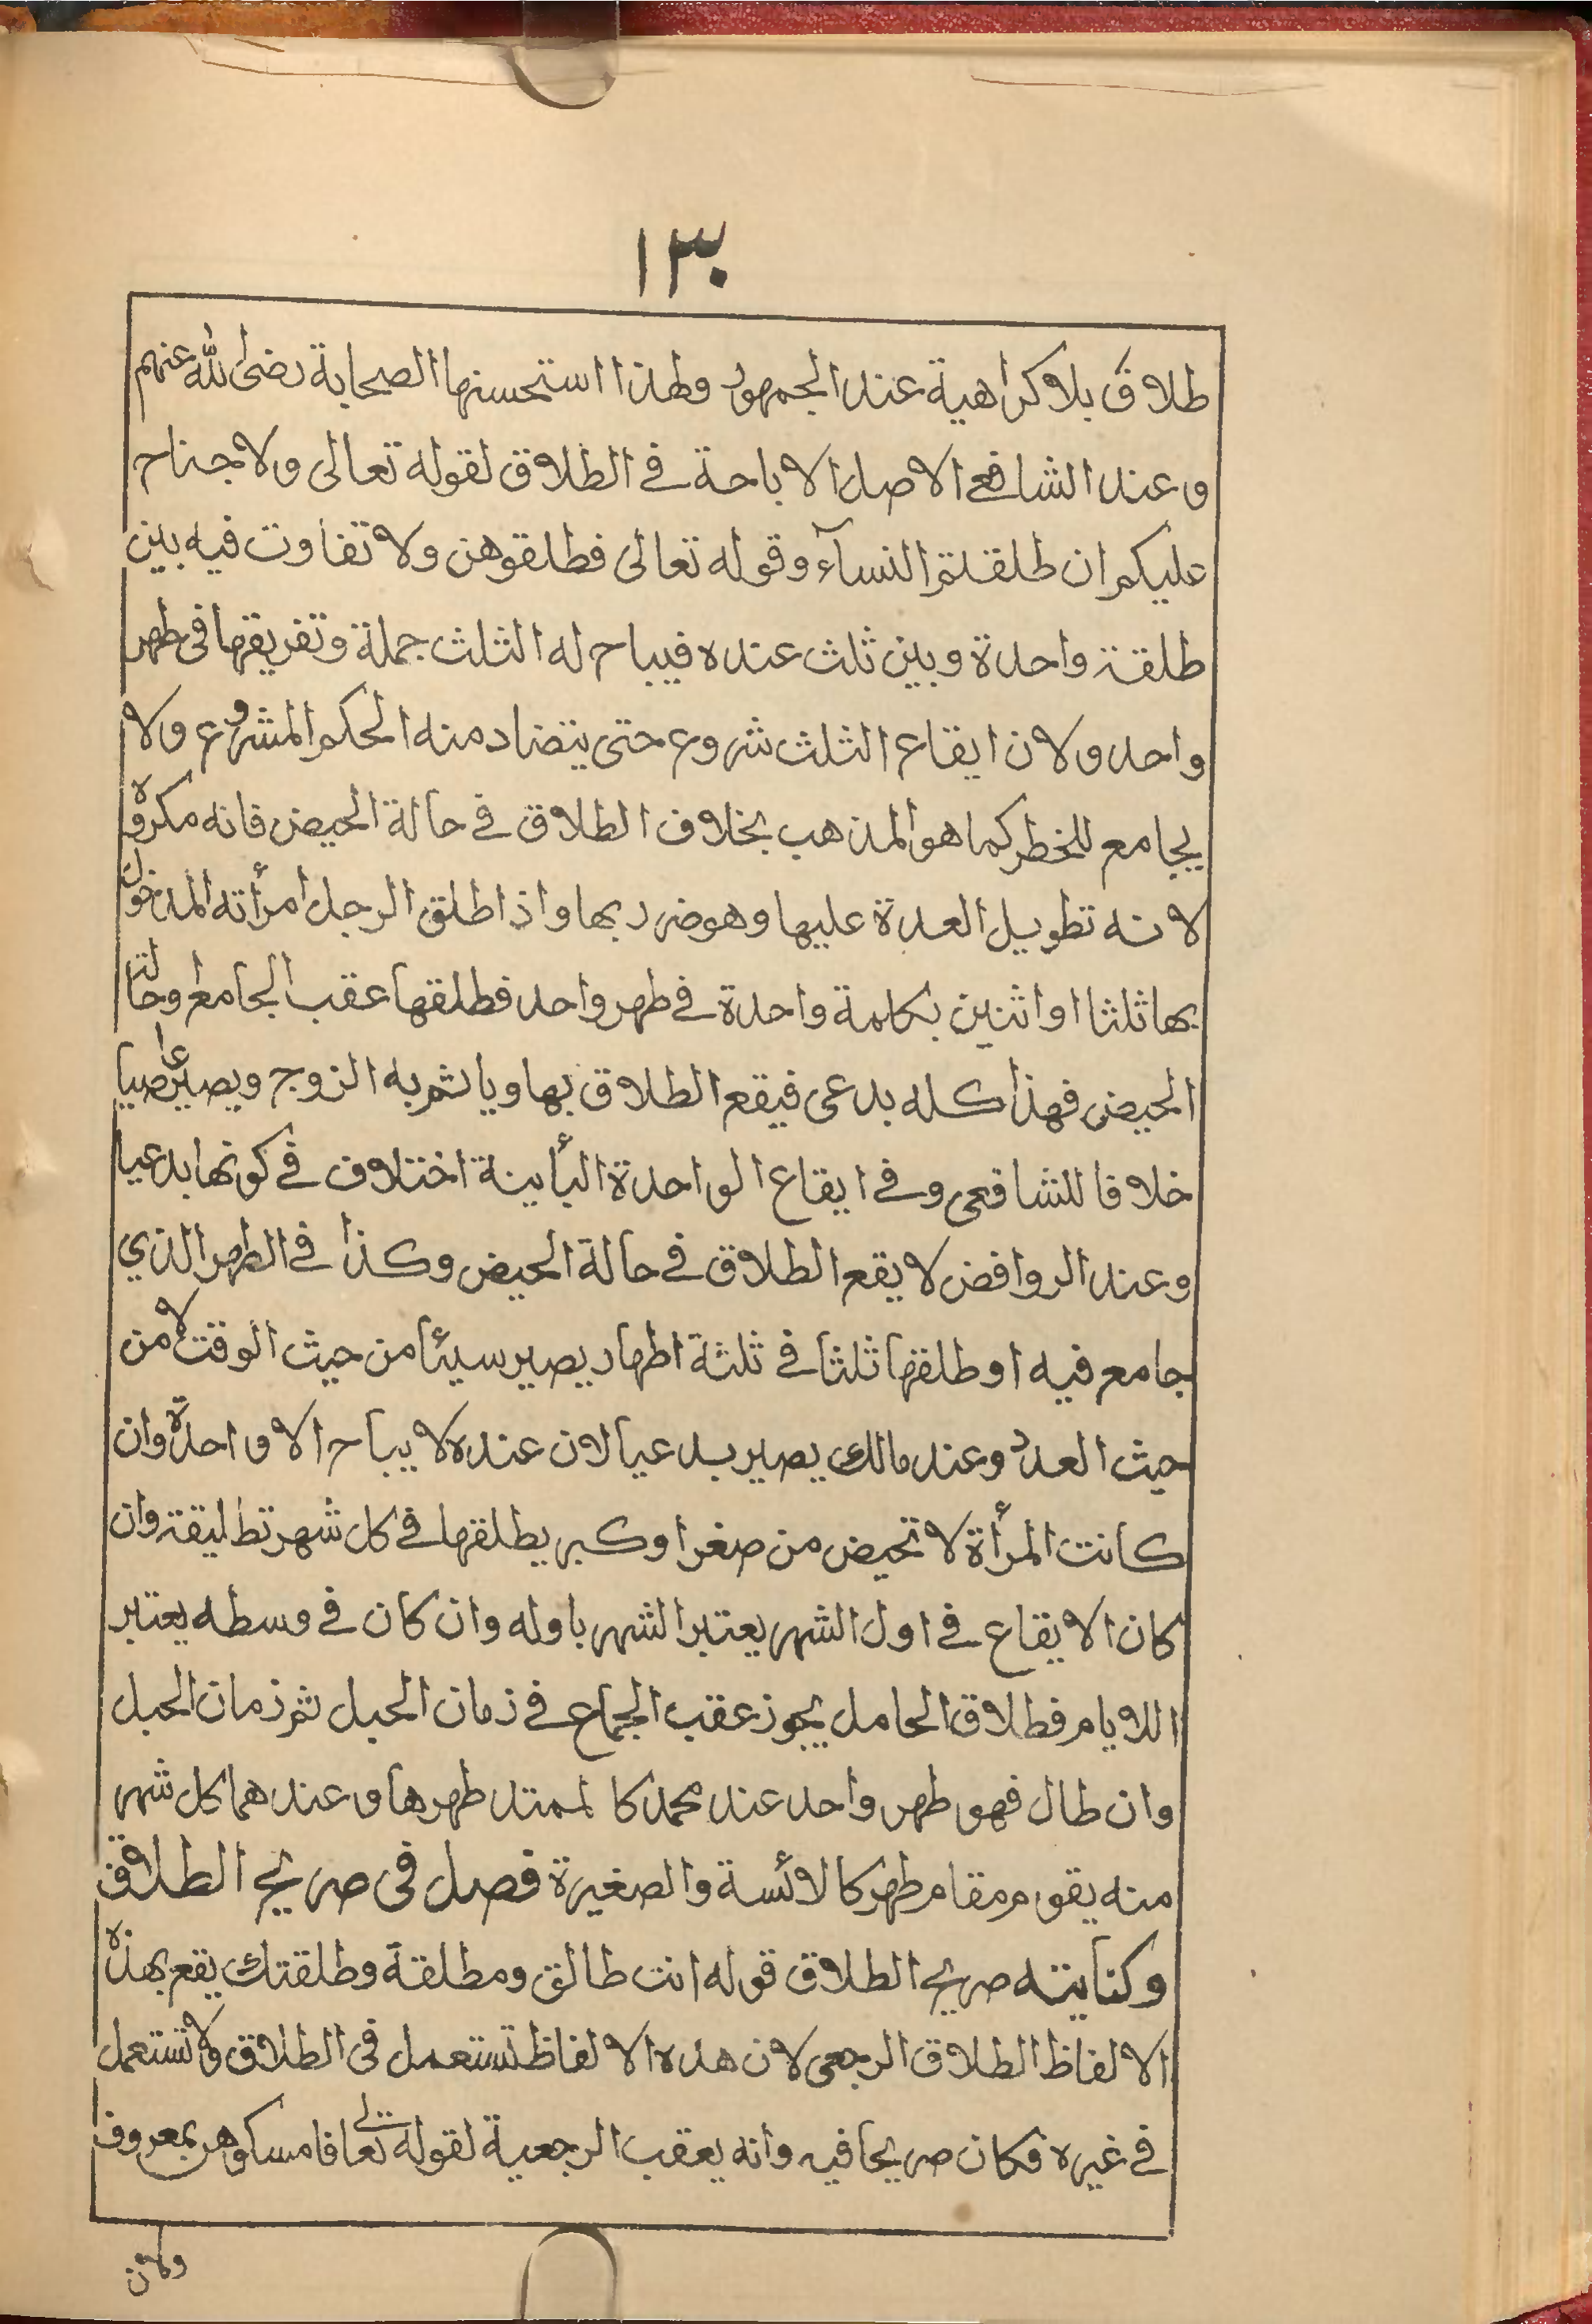 ١٣٠
طلاق بلا كراهية عند الجمهور ولهذا استحسنها الصحابة رضى الله عنهم
وعند الشافعى الاصل الاباحة فى الطلاق لقوله تعالى ولا جناح
عليكم ان طلقلتم النسآء وقوله تعالى فطلقوهن ولا تفاوت فيه بين
طلقة واحدة وبين ثلث عنده فيباح له الثلث جملة وتفريقها فى طهر
واحد ولان ايقاع الثلث شروع حتى يتضاد منه الحكم المشروع ولا
يجامع للخطر كما هو المذهب بخلاف الطلاق فى حالة الحيض فانه مكروه
لانه تطويل العدة عليها وهو ضرر بها واذا طلق الرجل امرأته المدخول
بها ثلثا او اثنين بكلمة واحدة فى طهر واحد فطلقها عقب الجامع او حالة
الحيض فهذا كله بدعى فيقع الطلاق بها ويأثم به الزوج ويصير عاصيا
خلافا للشافعى وفى ايقاع الواحدة البأينة اختلاف فى كونها بدعيا
وعند الروافض لا يقع الطلاق فى حالة الحيض وكذا فى الطهر الذي
جامع فيه او طلقها ثلثا فى ثلثة اطهار يصير سيئا من حيث الوقت لا من
حيث العدد وعند مالك يصير بدعيا لان عنده لا يباح الا واحدة وان
كانت المرأة لا تحيض من صغر او كبر يطلقها فى كل شهر تطليقة وان
كان الايقاع فى اول الشهر يعتبر الشهر باوله وان كان فى وسطه يعتبر
اللايام فطلاق الحامل يجوز عقب الجماع فى زمان الحبل ثم زمان الحبل
وان طال فهو طهر واحد عند محمد كا لممتد طهرها وعندهما كل شهر
منه يقوم مقام طهر كالائسة والصغيرة فصل فى صريح الطلاق
وكنايته صريح الطلاق قوله انت طالق ومطلقة وطلقتك يقع بهذه
الالفاظ الطلاق الرجعى لان هذه الالفاظ تستعمل فى الطلاق ولا تستعمل
فى غيره فكان صريحا فيه وانه يعقب الرجعية لقوله تعالى فامسكوهن بمعروف
ولان